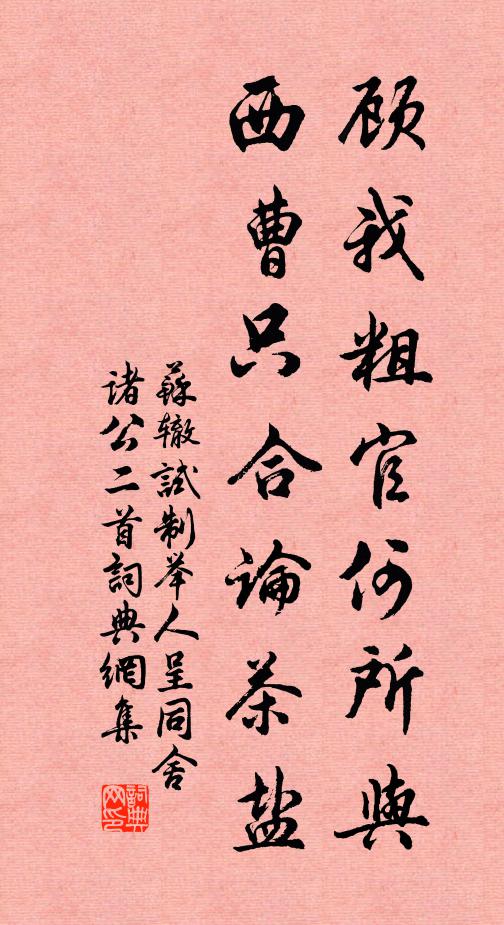 顾我粗官何所与
西曹只合论茶盐
苏辙試制举人呈同舍
诸公二首詞典網集
詞典网印